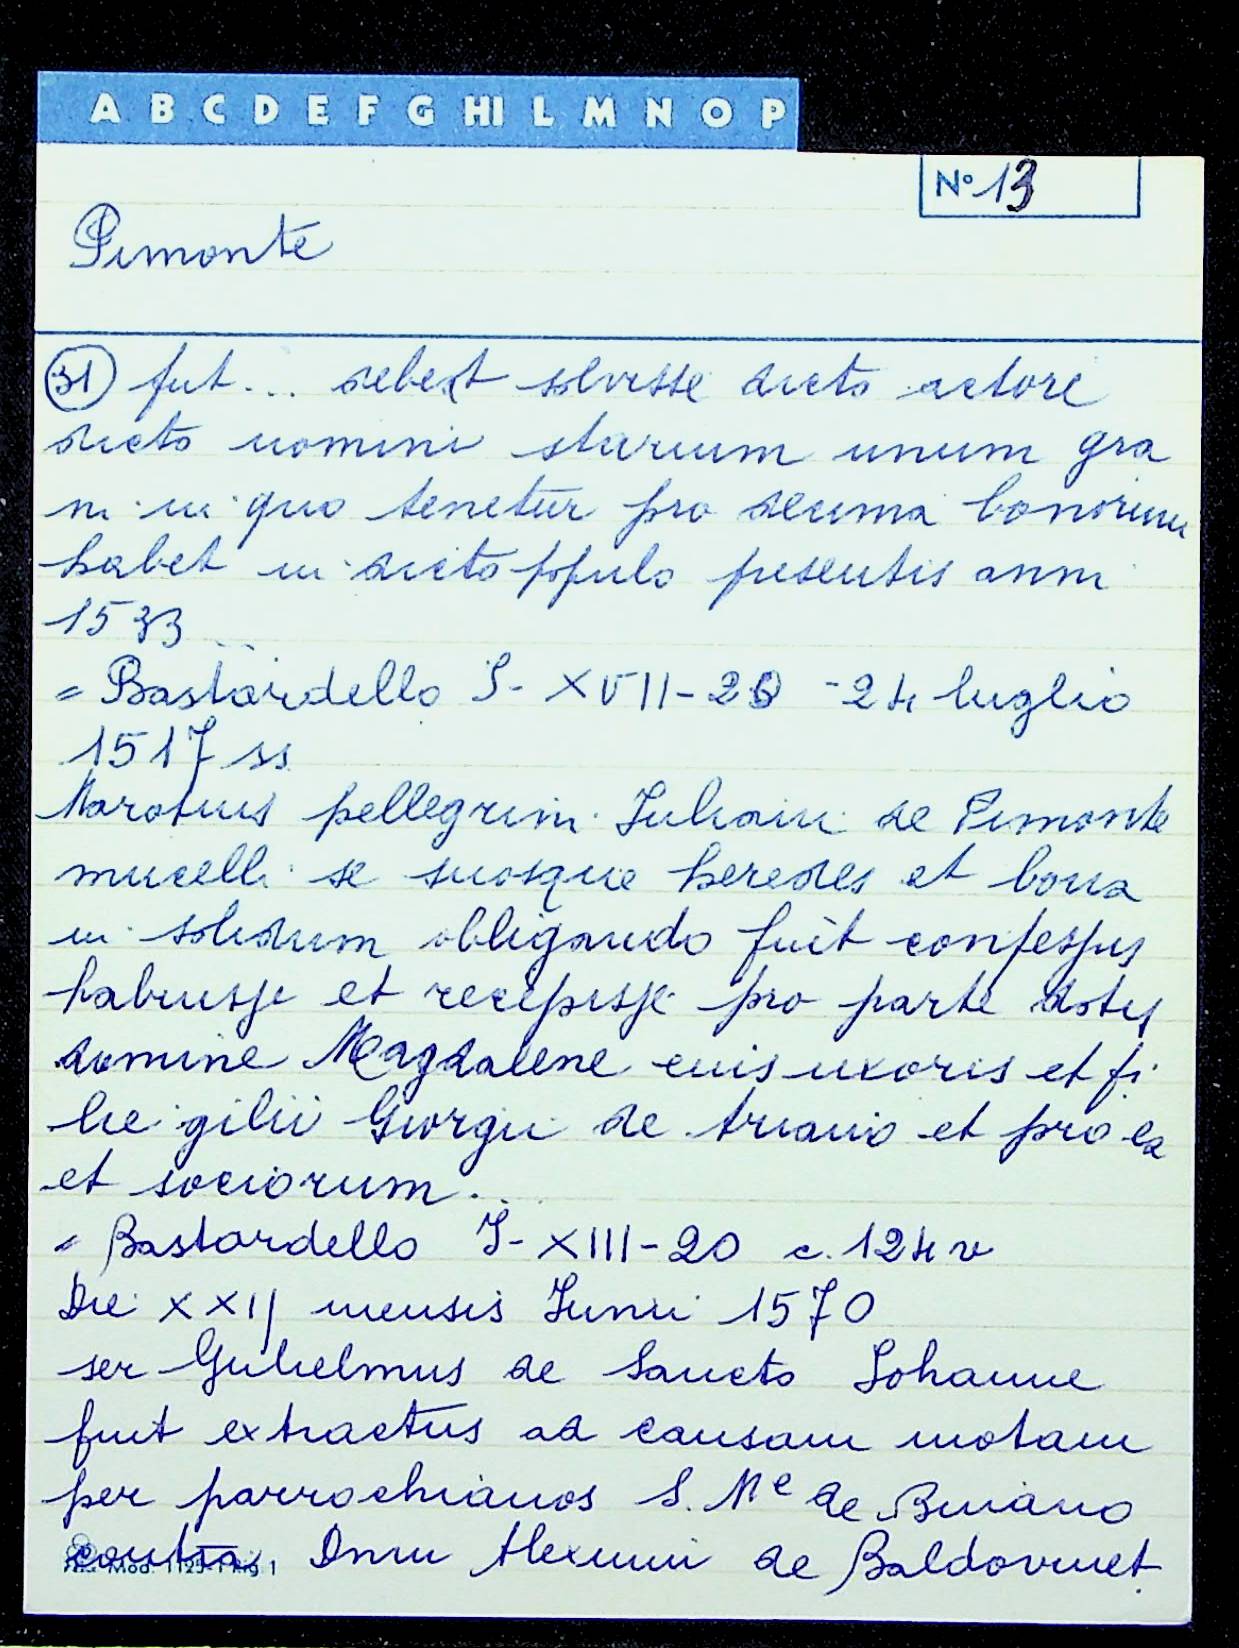 A B C D E F G HI L M N O P
N° 13
Pimonte
31 fut... debet solvisse dicto actore
dicto nomini starium unum gra
ni in quo tenetur pro decima bonorum
habet in dicto populo presentis anni
1533
= Bastardello I- XVII-20 -24 luglio
1517 ss
pellegrini Juliani de Pimonte
mucelli se suosque heredes et bona
in solidum obligando fuit confessus
habuisse et recepisse pro parte dotis
domine Magdalene euis uxoris et fi
lie gilii Giorgii de et pro ea
et sociorum...
= Bastardello I- XIII-20 c. 124 v
Die XXIJ mensis Junii 1570
ser Gulielmus de Sancto Johanne
fuit extractus ad causam motam
per parrochianos S. Me de Buiano
contra Dnm Alexum de Baldovinet
Mod. 1125-1 Rig 1